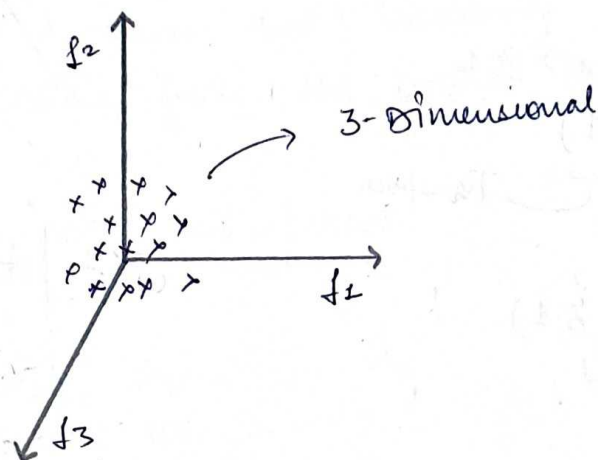 f2
3-Dimensional
f1
f3